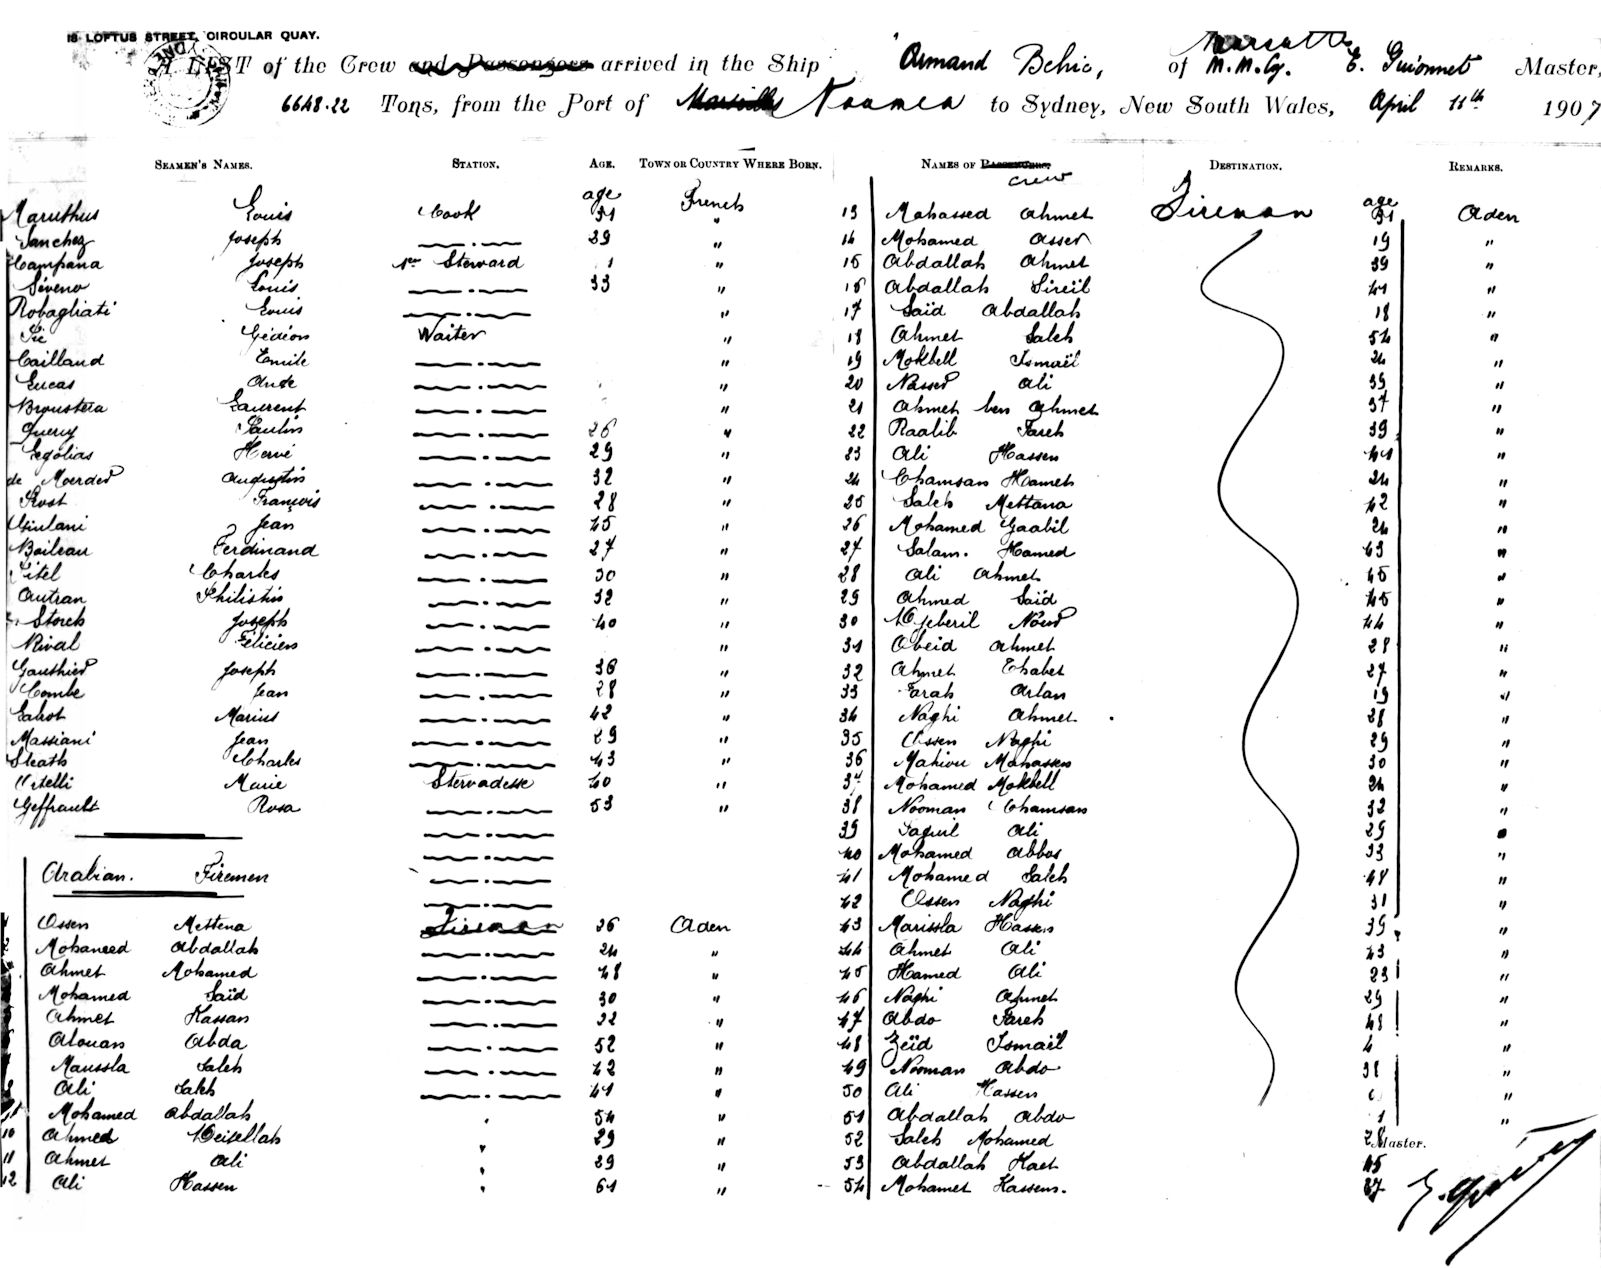 18 LOFTUS STREET, CIRCULAR QUAY.
A LIST of the Crew and Passengers arrived in the Ship Armand Behic, of Marseille M. M. Cy. E. Guionnet Master,
6648.22 Tons, from the Port of Marseilles Noumea to Sydney, New South Wales, April 11th 1907
SEAMEN'S NAMES. STATION. AGE. TOWN OR COUNTRY WHERE BORN. NAMES OF PASSENGERS. DESTINATION. REMARKS.
crew
age French age
Maruthus Louis Cook 31 " 13 Mahassed Ahmet Fireman 31 Aden
Sanchez Joseph 39 " 14 Mohamed Asser 19 "
Campana Joseph 1er Steward " 15 Abdallah Ahmet 39 "
Séveno Louis 33 " 16 Abdallah Sireïl 41 "
Robagliati Louis " 17 Saïd Abdallah 18 "
Gédéon Waiter " 18 Ahmet Saleh 54 "
Cailland Emile " 19 Mokbell Ismaël 24 "
Lucas Ange " 20 Nasser Ali 39 "
Broustera Laurent " 21 Ahmet ben Ahmet 37 "
Query Paulin 26 " 22 Raalib Sareh 39 "
Legolias Hervé 29 " 23 Ali Hassen 41 "
de Moerder Augustin 32 " 24 Chamsan Hameh 24 "
Prost François 28 " 25 Saleh Mettana 42 "
Giulani Jean 45 " 26 Mohamed Gaabil 24 "
Boileau Ferdinand 27 " 27 Salam. Hamed 43 "
Pitel Charles 30 " 28 Ali Ahmet 45 "
Autran Philistin 32 " 29 Ahmed Saïd 45 "
Storch Joseph 40 " 30 Djeberil Nour 44 "
Rival Félicien " 31 Obeid Ahmet 28 "
Gauthier Joseph 36 " 32 Ahmet Thabet 27 "
Combe Jean 28 " 33 Farah Artan 19 "
Lahot Marius 42 " 34 Naghi Ahmet 28 "
Massiani Jean 29 " 35 Ossen Naghi 29 "
Sleath Charles 43 " 36 Mahiou Mahassen 30 "
Vitelli Marie Stewadesse 40 " 37 Mohamed Mokbell 24 "
Geffrault Rosa 53 " 38 Nooman Chamsan 32 "
39 Ali 29
40 Mohamed Abbas 33 "
Arabian. Firemen 41 Mohamed Saleh 48 "
42 Ossen Naghi 31 "
Ossen Mettena Fireman 36 Aden 43 Marissla Hassen 39 "
Mohameed Abdallah 24 " 44 Ahmet Ali 43 "
Ahmet Mohamed 48 " 45 Hamed Ali 23 "
Mohamed Saïd 30 " 46 Naghi Ahmet 29 "
Ahmet Hassan 32 " 47 Abdo Sareh 48 "
Alouan Abda 52 " 48 Zeïd Ismaël "
Maussla Saleh 42 " 49 Nooman Abdo 38 "
8 Ali Saleh 41 " 50 Ali Hassen "
Mohamed Abdallah 54 " 51 Abdallah Abdo "
10 Ahmed 29 " 52 Saleh Mohamed 28 Master.
11 Ahmet Ali 39 " 53 Abdallah Haet 45
12 Ali Hassen 61 " 54 Mohamet Hassens. 27